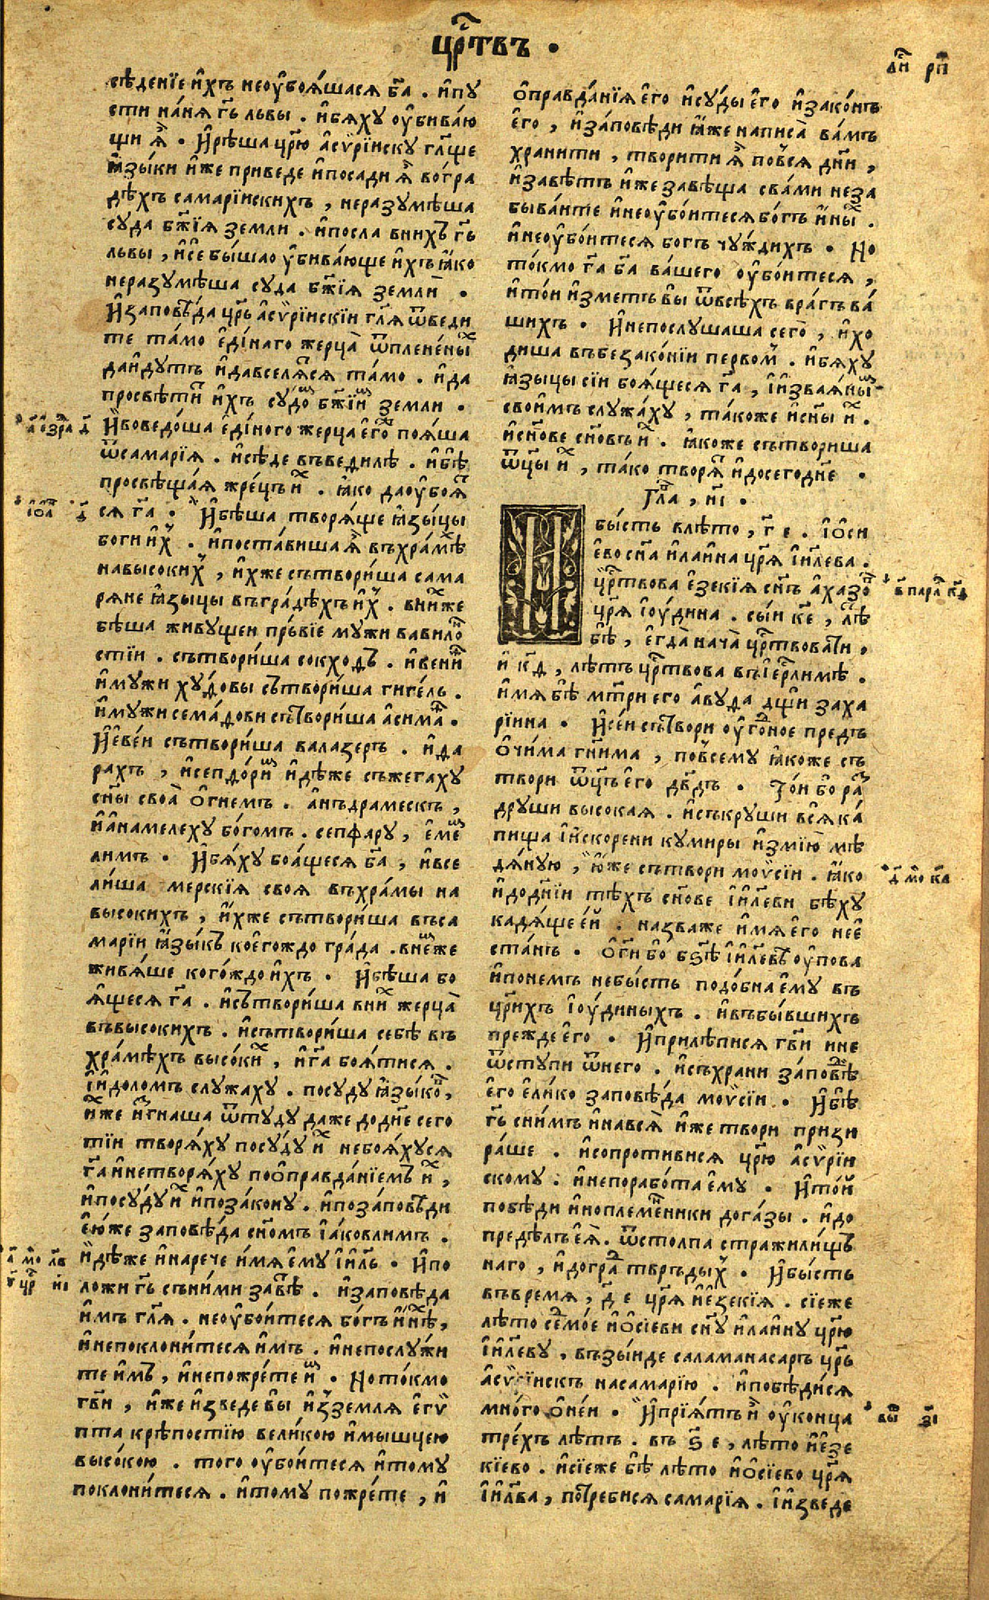 цр҃твъ •
сѣденїе и҆хъ неоу҆боя́шася бг҃а . и҆пу
сти наня гь҃ львы . и҆бяху оу҆бива́ю
щи ѧ҆̀ • И҆рѣша цр҃ю а҆сѷрїиску гл҃ще
ꙗ҆зы́ки и҆же приведе и҆посади ѧ҆̀ во́гра
дѣхъ самарїискихъ , неразумѣша
суда бж҃їя земли . и҆посла вни́хъ гь҃
львы , и҆се бы́шао у҆бива́юще и҆хъ ꙗ҆́ко
неразумѣша суда бж҃їя земли •
И҆заповѣ́да цр҃ь а҆сѷрїискїи гл҃я ѿведи
те та́мо е҆ди́наго жерца̀ ѿплене́ныⷯ
даи́дутъ и҆давселѧ́сѧ та́мо . и҆да
просвѣтѝⷮ и҆хъ судоⷨ бж҃їиⷨ земли •
И҆воведо́ша е҆ди́ного жерца е҆гоⷤ поя́ша
ѿсамарїя . и҆сѣде въведилѣ . и҆бѣ̀
просвѣща́я жре́цъ иⷯ . ꙗ҆́ко даоу҆боя́ⷮ
ся гⷭ҇а • И҆бѣша творя́ще ꙗ҆зы́цы
боги и҆́ⷯ . и҆поста́виша ѧ҆̀ въхра́мѣⷯ
навысокиⷯ , и҆́хже сътвори́ша сама
ряне ꙗ҆зы́цы въгра́дѣхъ и҆ⷯ . вни́хже
бѣша живущеи пръвїе мужи вавилоⷩ
стїи . сътвори́ша сокходъ . и҆вени́ⷨ
и҆мужи худовы сътвори́ша гиге́ль .
и҆мужи сема́дови сътвори́ша а҆симаⷴ •
И҆е҆ве́и сътвори́ша валазеръ . и҆да
рахъ , и҆сепдо́риⷨ и҆дѣже съжегаху
сн҃ы своа̀ о҆гнемъ . а҆нъдрамескъ ,
и҆а҆намелеху бо́гомъ . сепфару , е҆меⷨ
лимъ • И҆бя́ху боа́щеся бг҃а , и҆все
ли́ша мерскїя своя въхра́мы на
высокихъ , и҆́хже сътвори́ша въса
марїи ꙗ҆зы́къ кое҆гождо гра́да . вне́мже
живя́ше кого́ждо и҆хъ . И҆бѣша бо
я́щеся гⷭ҇а . и҆сътвори́ша вниⷯ жерца̀
въвысокихъ . и҆сътвори́ша себѣ въ
хра́мѣхъ высо́киⷯ , и҆гⷭ҇а боя́тися .
и҆и҆доломъ служаху . посуду ꙗ҆зы́коⷨ ,
и҆́хже и҆згнаша ѿтуду даже додн҃е сего
тїи творя́ху посу́ду иⷯ небоя́хуся
гⷭ҇а и҆нетворя́ху поо҆правда́нїемъ иⷯ ,
и҆посу́ду иⷯ и҆поза́кону . и҆поза́повѣ́ди
е҆ю́же заповѣ́да сн҃омъ і҆а́ковлимъ .
и҆дѣже и҆нарече и҆мя е҆му і҆и҃ль • И҆по
ложи гь҃ съни́ми завѣⷮ . и҆заповѣ́да
и҆мъ гл҃я . неоу҆бо́итеся бо́гъ и҆нѣⷯ ,
и҆непоклони́теся и҆мъ . и҆непослу́жи
те и҆мъ , и҆непожре́те иⷨ • Ното́кмо
гв҃и , и҆́же и҆зведе вы и҆ⷥземля е҆гѵ
пта крѣпостїю вели́кою и҆мышцею
высо́кою . того оу҆бо́итеся и҆тому
поклони́теся . и҆тому пожре́те , и҆
о҆правда́нїя е҆го и҆суды е҆го и҆зако́нъ
е҆го , и҆за́повѣди ꙗ҆́же написа̀ ва́мъ
храни́ти , твори́ти ѧ҆̀ повсѧ дн҃и ,
и҆завѣ́тъ и҆́же завѣща сва́ми неза
быва́ите и҆неоу҆бо́итеся бо́гъ и҆ныⷯ .
и҆неоу҆бо́итеся богъ чуждихъ • Но
то́кмо гⷭ҇а бг҃а ва́шего оу҆бо́итеся ,
и҆то́и и҆зметъ вы ѿвсѣхъ врагъ ва́
шихъ • И҆непослушаша сего̀ , и҆хо
диша въбезако́нїи первоⷨ . и҆бяху
ꙗ҆зы́цы сїи боя́щеся гⷭ҇а , і҆и҆зва́яныⷨ
свои́мъ служа́ху , та́коже и҆сн҃ы иⷯ .
и҆сн҃ове сн҃овъ иⷯ . ꙗ҆́коже сътвориша
ѿц҃ы иⷯ , та́ко творя́ⷮ и҆досего́дн҃е •
Гла̀ , и҃і •
И быⷭ҇ть влѣто , г҃ е . і҆ѻ҆си
е҆во сн҃а и҆лаи́на цр҃я і҆и҃лева .
цр҃твова е҆зекі́я сн҃ъ а҆ха́зоⷡ
цр҃я і҆оу҆дина . сы́и к҃е , лѣⷮ
бѣ , е҆гда нача̀ цр҃твовати ,
и҆ к҃д , лѣтъ цр҃твова въі҆ерⷭ҇лимѣ .
и҆мя бѣ мт҃ри его а҆вуда дщ҃и заха
рїина • И҆се́и сътвори оу҆го́ⷣное предъ
о҆чи́ма гн҃има , повсему ꙗ҆́коже съ
твори ѿц҃ъ е҆го дв҃дъ • То́и бо раⷥ
друши высокая . и҆съкруши вся́ ка́
пища і҆и҆скорени кумиры и҆зми́ю мѣ
дя́ную , ю҆́же сътвори моѷсїи . ꙗ҆́ко
и҆додн҃їи тѣхъ сн҃ове і҆и҃леви бѣху
кадя́ще е́и . назваже и҆мя е҆го нее
ста́нъ . о҆ги҃ бо бз҃ѣ і҆и҃левѣ оу҆пова
и҆понемъ небы́сть подо́бна е҆му въ
цр҃ихъ і҆оу҆диныхъ . и҆въбы́вшихъ
прежде е҆го • И҆прилѣпися гв҃и и҆не
ѿступи ѿнего . и҆съхрани за́повѣⷣ
е҆го е҆ли́ко заповѣ́да моѷсїи • И҆бѣ
гь҃ сни́мъ и҆нався̀ и҆́же твори призи
ра́ше . и҆сопротивися цр҃ю а҆сѷрїи
скому . и҆непорабо́та е҆му • И҆то́и
побѣди и҆ноплеме́нники дога́зы . и҆до
предѣлъ е҆я̀ . ѿстолпа стражили́щъ
наго , и҆догра́ⷣ твръды́ⷯ • И҆быⷭ҇ть
въвремя , д҃ е цр҃я и҆е҆зекі́я . сїеже
лѣто семо́е и҆ѻ҆сїеви сн҃у и҆лаи́ну цр҃ю
і҆и҃леву , възы́иде саламанасаръ цр҃ь
а҆сѷрїискъ насамарїю . и҆побѣди́ся
мно́го о҆не́и • И҆прїя́тъ ѝ оу҆конца
тре́хъ лѣтъ . въ ѕ҃ е , лѣто и҆е҆зе
кїево . и҆сїеже бѣ лѣто и҆ѻ҆сїево цр҃я
і҆и҃лва , потребися самарїя . і҆и҆зведе